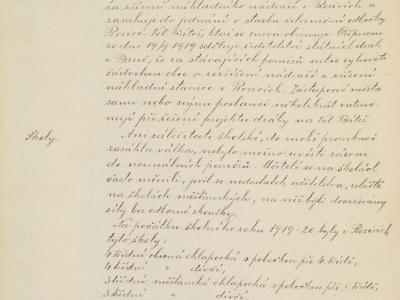 za zřízení nákladního nádraží v Rosicích a
zasahuje do jednání o stavbu železniční odbočky
Rosice-Vel. Bíteš, která se znovu obnovuje. Přípisem
ze dne 19/9 1919 sděluje ředitelství státních drah
v Brně, že za stávajících poměrů nelze vyhověti
žádostem obce o rozšíření nádraží a zřízení
nákladní stanice v Rosicích. Zástupcové města
sami nebo svými poslanci několikrát interve-
nují při řešení projektu dráhy na Vel. Bíteš
Školy.
Ani záležitosti školské, do nichž pronikavě
zasáhla válka, nebylo možno uvésti rázem
do normálních poměrů. Učitelé se na školách
často měnili, jevil se nedostatek učitelstva, zvláště
na školách měšťanských, na něž byli dosazovány
síly bez odborné zkoušky.
Na počátku školního roku 1919-20 byly v Rosicích
tyto školy:
4 třídní obecná chlapecká s pobočkou při 4. třídě,
4 třídní " dívčí,
3 třídní měšťanská chlapecká s pobočkou při 1. třídě,
3 třídní " dívčí.